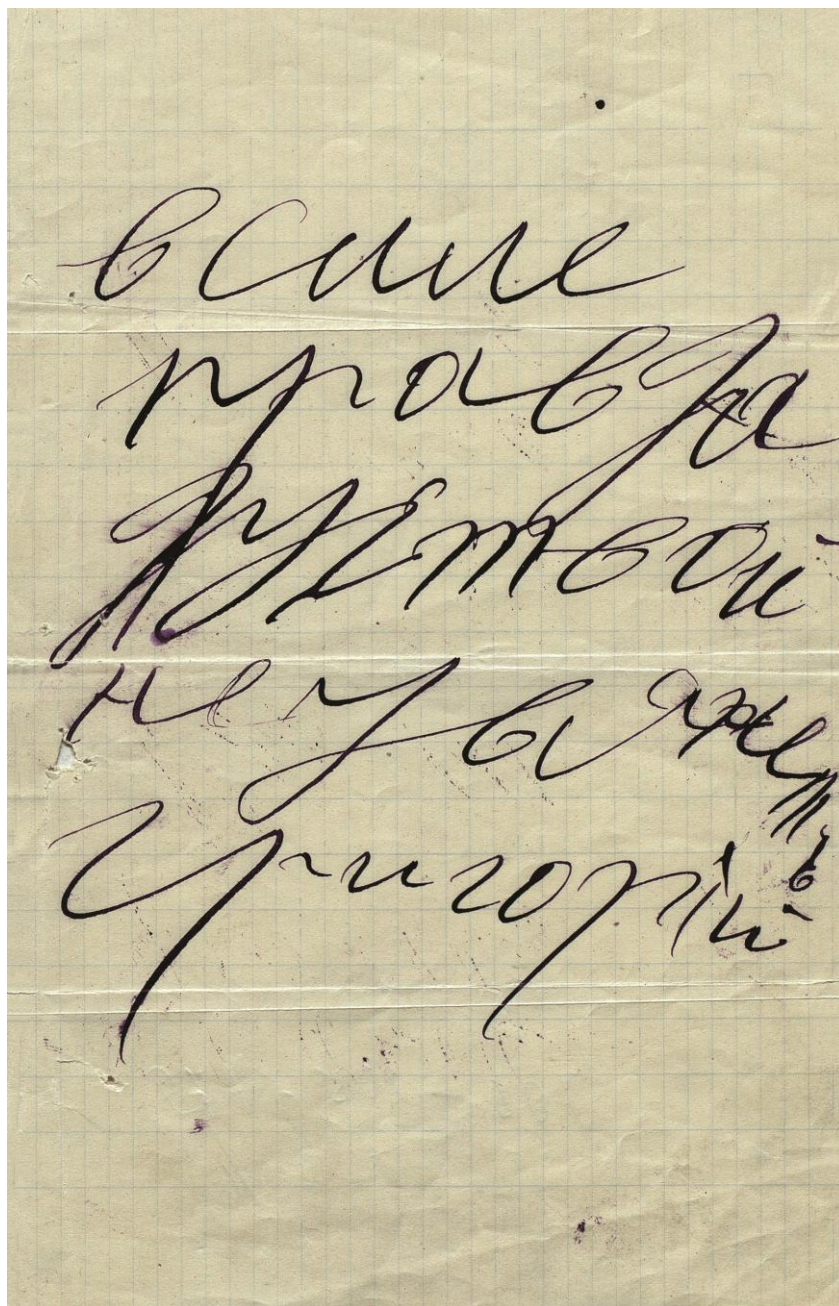 в силе
правда
дух твой
не уважить
Григорій